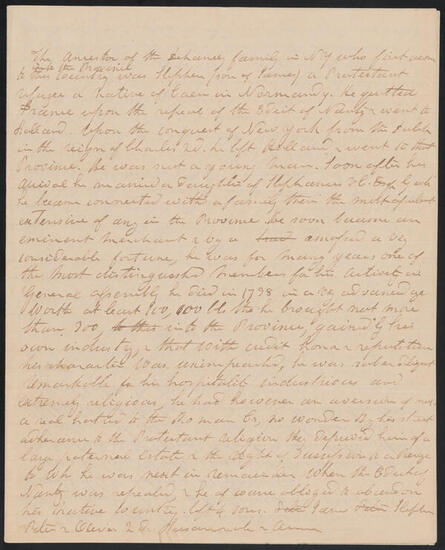 The Ancestor of the Delancey family in NY who first came
into the Province
to this Country was Stephen (son of James) a Protestant
refugee a Native of Caen in Normandy. He quitted
France upon the repeal of the Edict of Nantz & went to
Holland. Upon the conquest of New York from the Dutch
in the reign of Charles 2d. he left Holland & went to that
Province. He was not a young man. Soon after his
arrival he married a daughter of Stephanus V. C. Esqr by wh
he became connected with a family then the most opulent
extensive of any in the Province he soon became an
eminent Merchant & by a amassed a
considerable fortune, he was for many years one of
the most distinguished Members for his activity in
General Assembly he died in 1738 in a advanced age
Worth at least 100,000 he brought not more
than 300, into the Province, gained by his
own industry & that with credit honor & reputation
his character was unimpeached, he was
remarkable for his hospitality industrious and
extremely religious, he had however an aversion if not
a real hatred to the Roman Cs, no wonder By his strict
adherence to the Protestant religion they deprived him of a
large paternal Estate & the right of Succession to a large
to wh he was next in remainder When the Edict of
Nantz was repealed, & he of course obliged to abandon
his native Country. left 4 sons. James Stephen
Peter & Oliver 2 d. Susannah & Anne